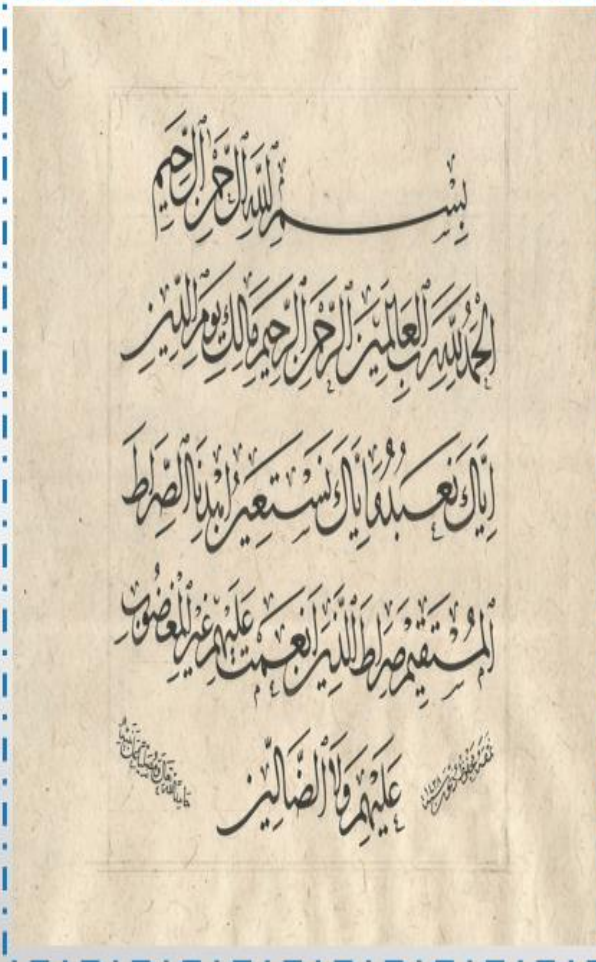 بِسْمِ اللَّهِ الرَّحْمٰنِ الرَّحِيمِ
الْحَمْدُ لِلَّهِ رَبِّ الْعَالَمِينَ الرَّحْمٰنِ الرَّحِيمِ مَالِكِ يَوْمِ الدِّينِ
اِيَّاكَ نَعْبُدُ وَاِيَّاكَ نَسْتَعِينُ اِهْدِنَا الصِّرَاطَ
الْمُسْتَقِيمَ صِرَاطَ الَّذِينَ اَنْعَمْتَ عَلَيْهِمْ غَيْرِ الْمَغْضُوبِ
عَلَيْهِمْ وَلَا الضَّالِّينَ